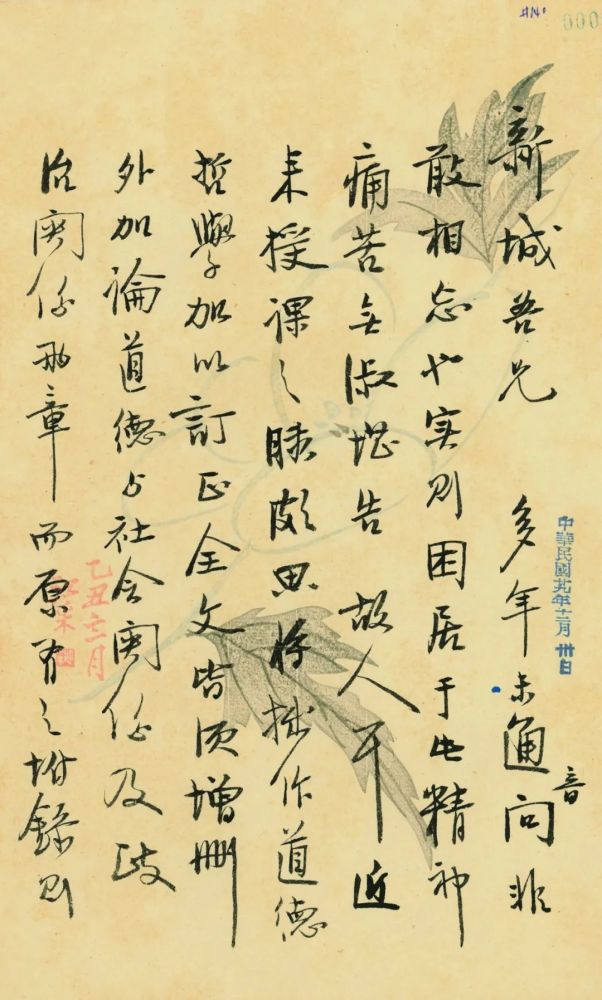 #140
000
新城吾兄 多年未通音问非
敢相忘也实则困居于此精神
痛苦無淑堪告故人耳近
来授课之暇颇思将拙作道德
哲學加以訂正全文皆须增删
外加論道德与社会関係及政
治関係两章而原有之附錄则
中華民國廿九年十二月卅日
乙丑十二月